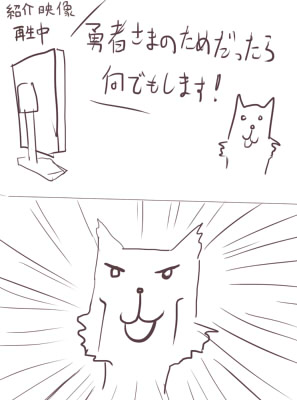 紹介映像
再生中
勇者さまのためだったら
何でもします!